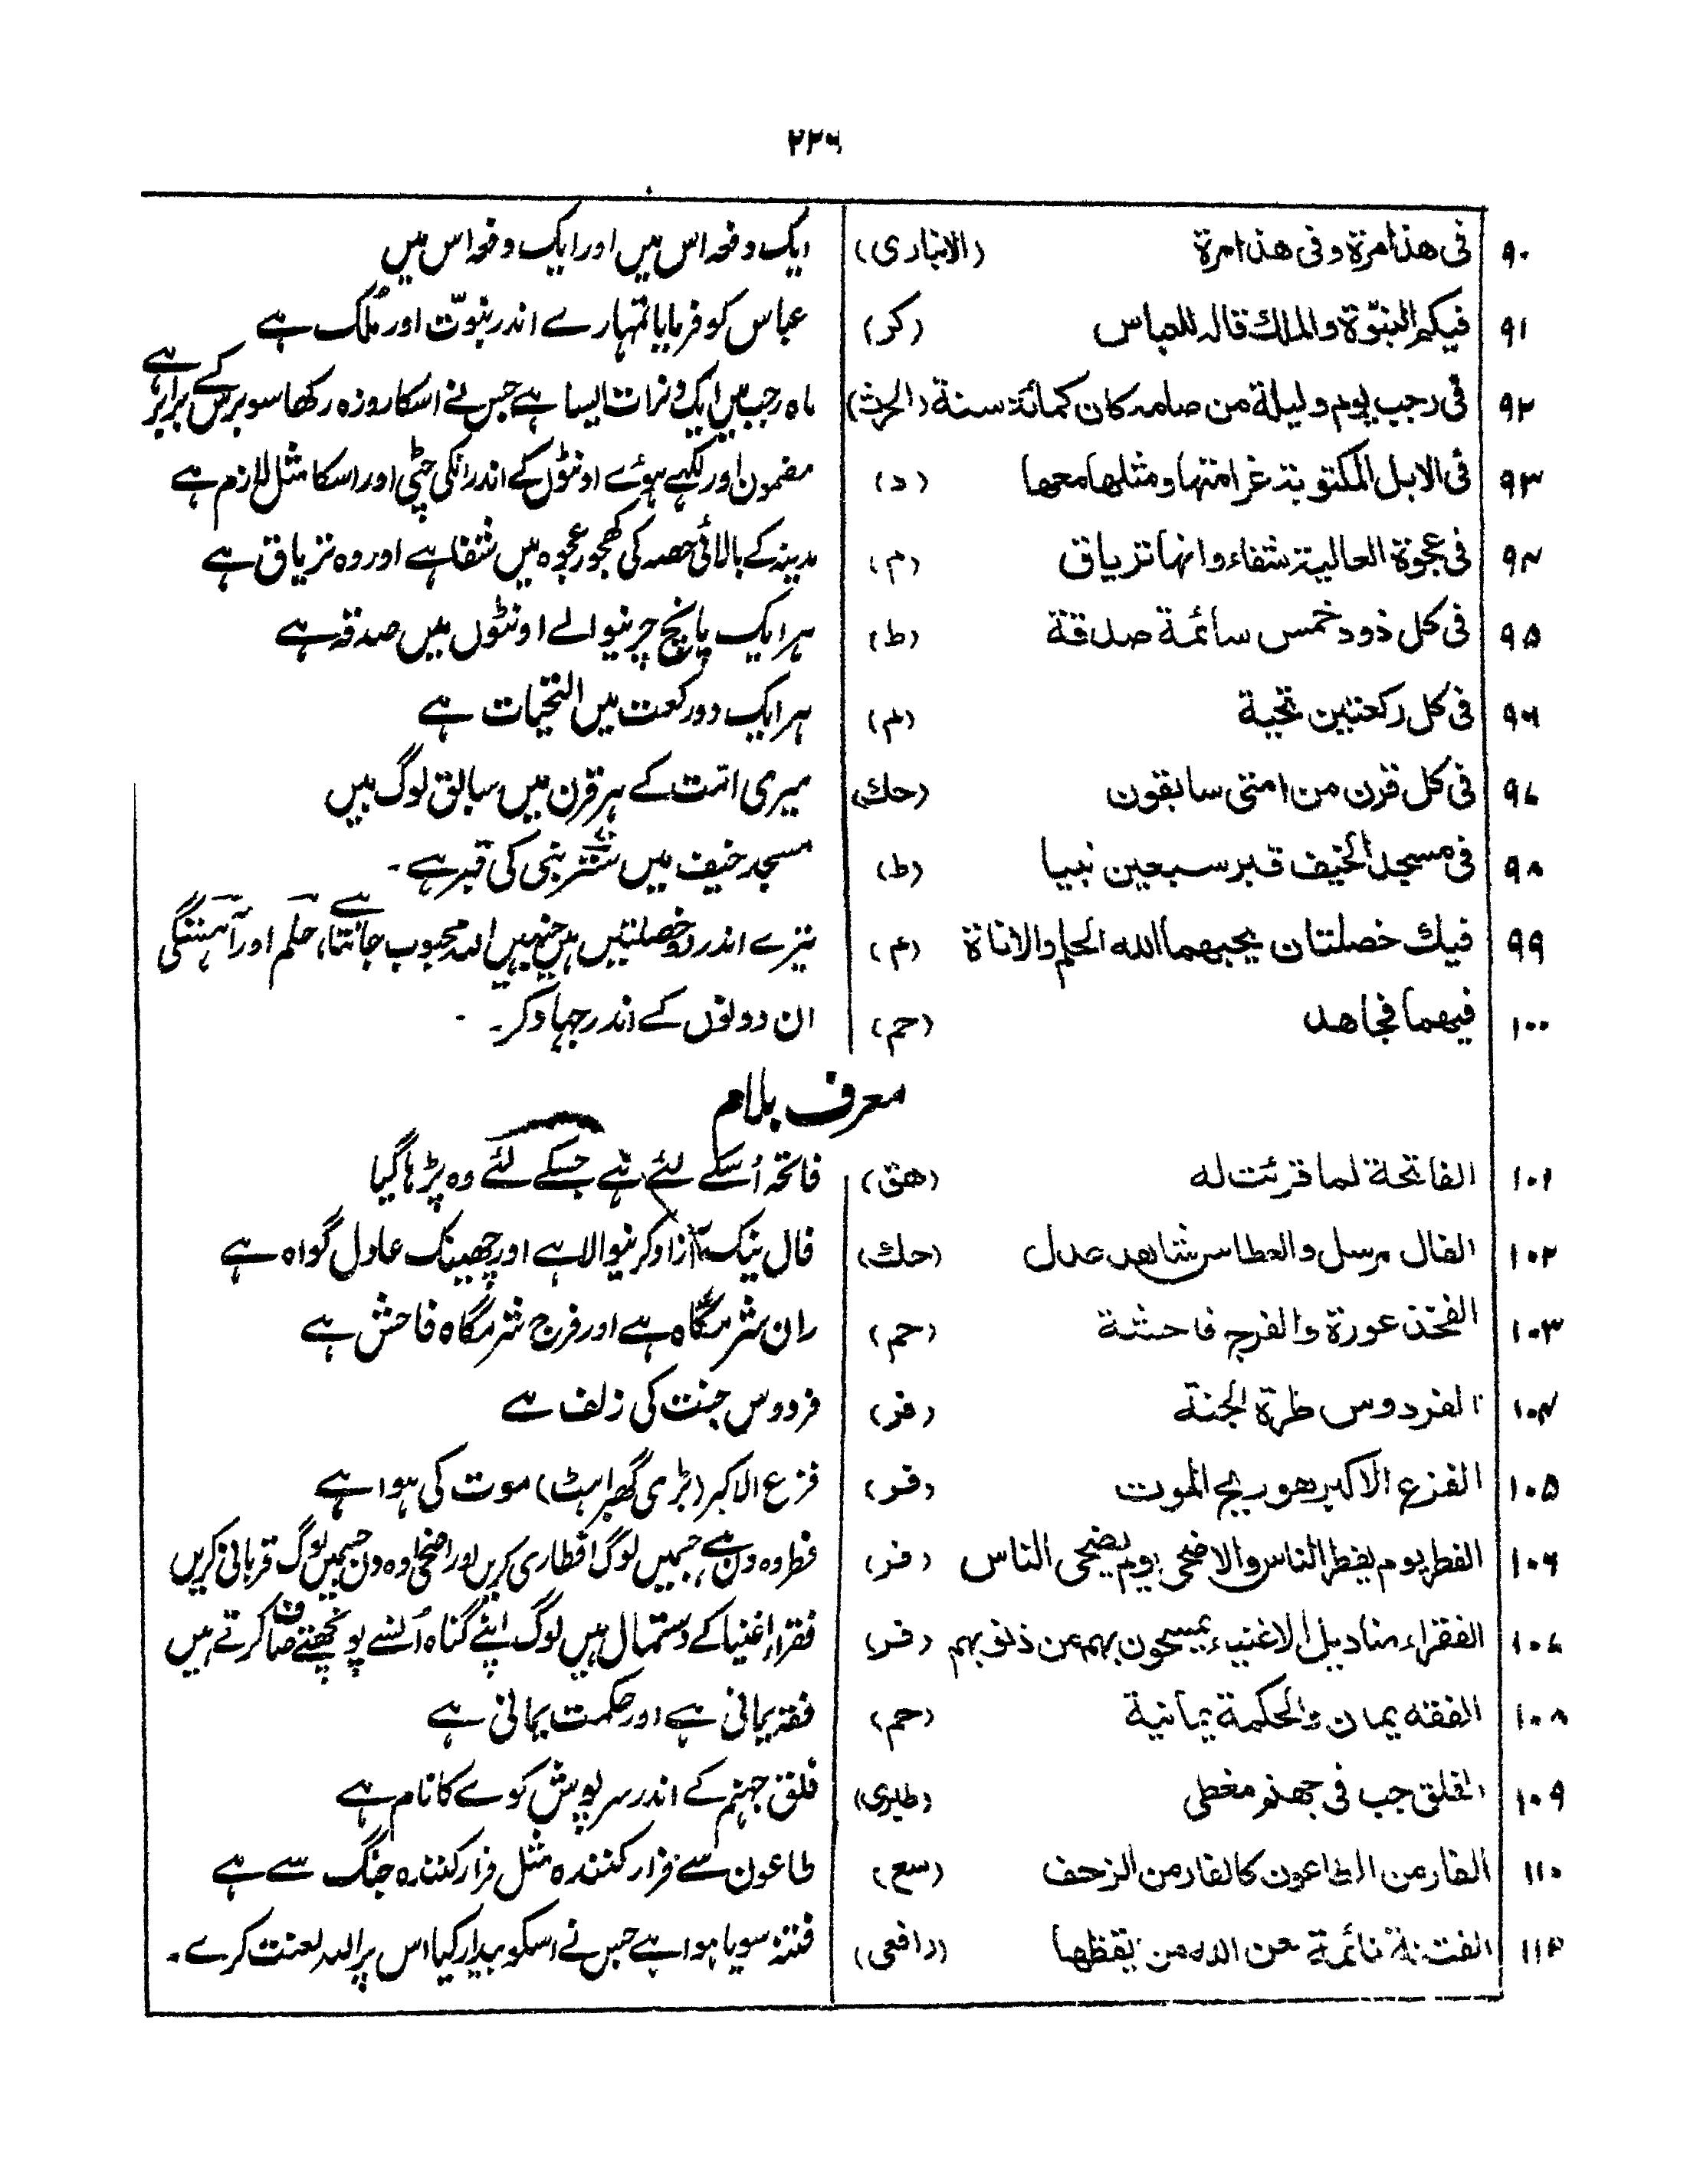 ۲۲۶
۹۰ فی هذا مرة وفی هذا مرة (الانباری) ایک دفعہ اس میں اور ایک دفعہ اس میں
۹۱ فیکم النبوّة والملك قاله للعباس (کر) عباس کو فرمایا تمہارے اندر نبوّت اور مُلک ہے
۹۲ فی رجب یوم ولیلة من صامه کان کمائة سنة (الحرث) ماہ رجب میں ایک دن رات ایسا ہے جس نے اسکا روزہ رکھا سو برس کے برابر ہے
۹۳ فی الابل المکتوبة غرامتها ومثلها معها (د) مضمون اور لکہے ہوئے اونٹوں کے اندر انکی چٹی اور اسکا مثل لازم ہے
۹۴ فی عجوة العالیة شفاء وانها تریاق (م) مدینہ کے بالائی حصہ کی کھجور عجوہ میں شفا ہے اور وہ تریاق ہے
۹۵ فی کل ذود خمس سائمة صدقة (ط) ہر ایک پانچ چرنیوالے اونٹوں میں صدقہ ہے
۹۶ فی کل رکعتین تحیة (م) ہر ایک دو رکعت میں التحیات ہے
۹۷ فی کل قرن من امتی سابقون (حك) میری امت کے ہر قرن میں سابق لوگ ہیں
۹۸ فی مسجد الخیف قبر سبعین نبیا (ط) مسجد خیف میں ستر نبی کی قبر ہے۔
۹۹ فیك خصلتان یحبهما الله الحلم والاناة (م) تیرے اندر دو خصلتیں ہیں جنہیں اللہ محبوب جانتا ہے، حلم اور آہستگی
۱۰۰ فیهما فجاهد (حم) ان دونوں کے اندر جہاد کر۔
معرف بلام
۱۰۱ الفاتحة لما قرئت له (هق) فاتحہ اُسکے لئے ہے جسکے لئے وہ پڑہا گیا
۱۰۲ الفال مرسل والعطاس شاهد عدل (حك) فال نیک آزاد کرنیوالا ہے اور چھینک عادل گواہ ہے
۱۰۳ الفخذ عورة والفرج فاحشة (حم) ران شرمگاہ ہے اور فرج شرمگاہ فاحش ہے
۱۰۴ الفردوس طرة الجنة (فر) فردوس جنت کی زلف ہے
۱۰۵ الفزع الاکبر هو ریح الموت (فر) فزع الاکبر (بڑی گھبراہٹ) موت کی ہوا ہے
۱۰۶ الفطر یوم یفطر الناس والاضحی یوم یضحی الناس (فر) فطر وہ دن ہے جسمیں لوگ افطاری کریں اور اضحی وہ دن جسمیں لوگ قربانی کریں
۱۰۷ الفقراء منادیل الاغنیاء یمسحون بهم عن ذنوبهم (فر) فقراء اغنیا کے دستمال ہیں لوگ اپنے گناہ اُنسے پونچھتے صاف کرتے ہیں
۱۰۸ الفقه یمان والحکمة یمانیة (حم) فقہ یمانی ہے اور حکمت یمانی ہے
۱۰۹ الفلق جب فی جهنم مغطی (طبری) فلق جہنم کے اندر سرپوش کوے کا نام ہے
۱۱۰ الفار من الطاعون کالفار من الزحف (سع) طاعون سے فرار کنندہ مثل فرار کنندہ جنگ سے ہے
۱۱۲ الفتنة نائمة لعن الله من یقظها (رافعی) فتنہ سویا ہوا ہے جس نے اسکو بیدار کیا اس پر اللہ لعنت کرے۔